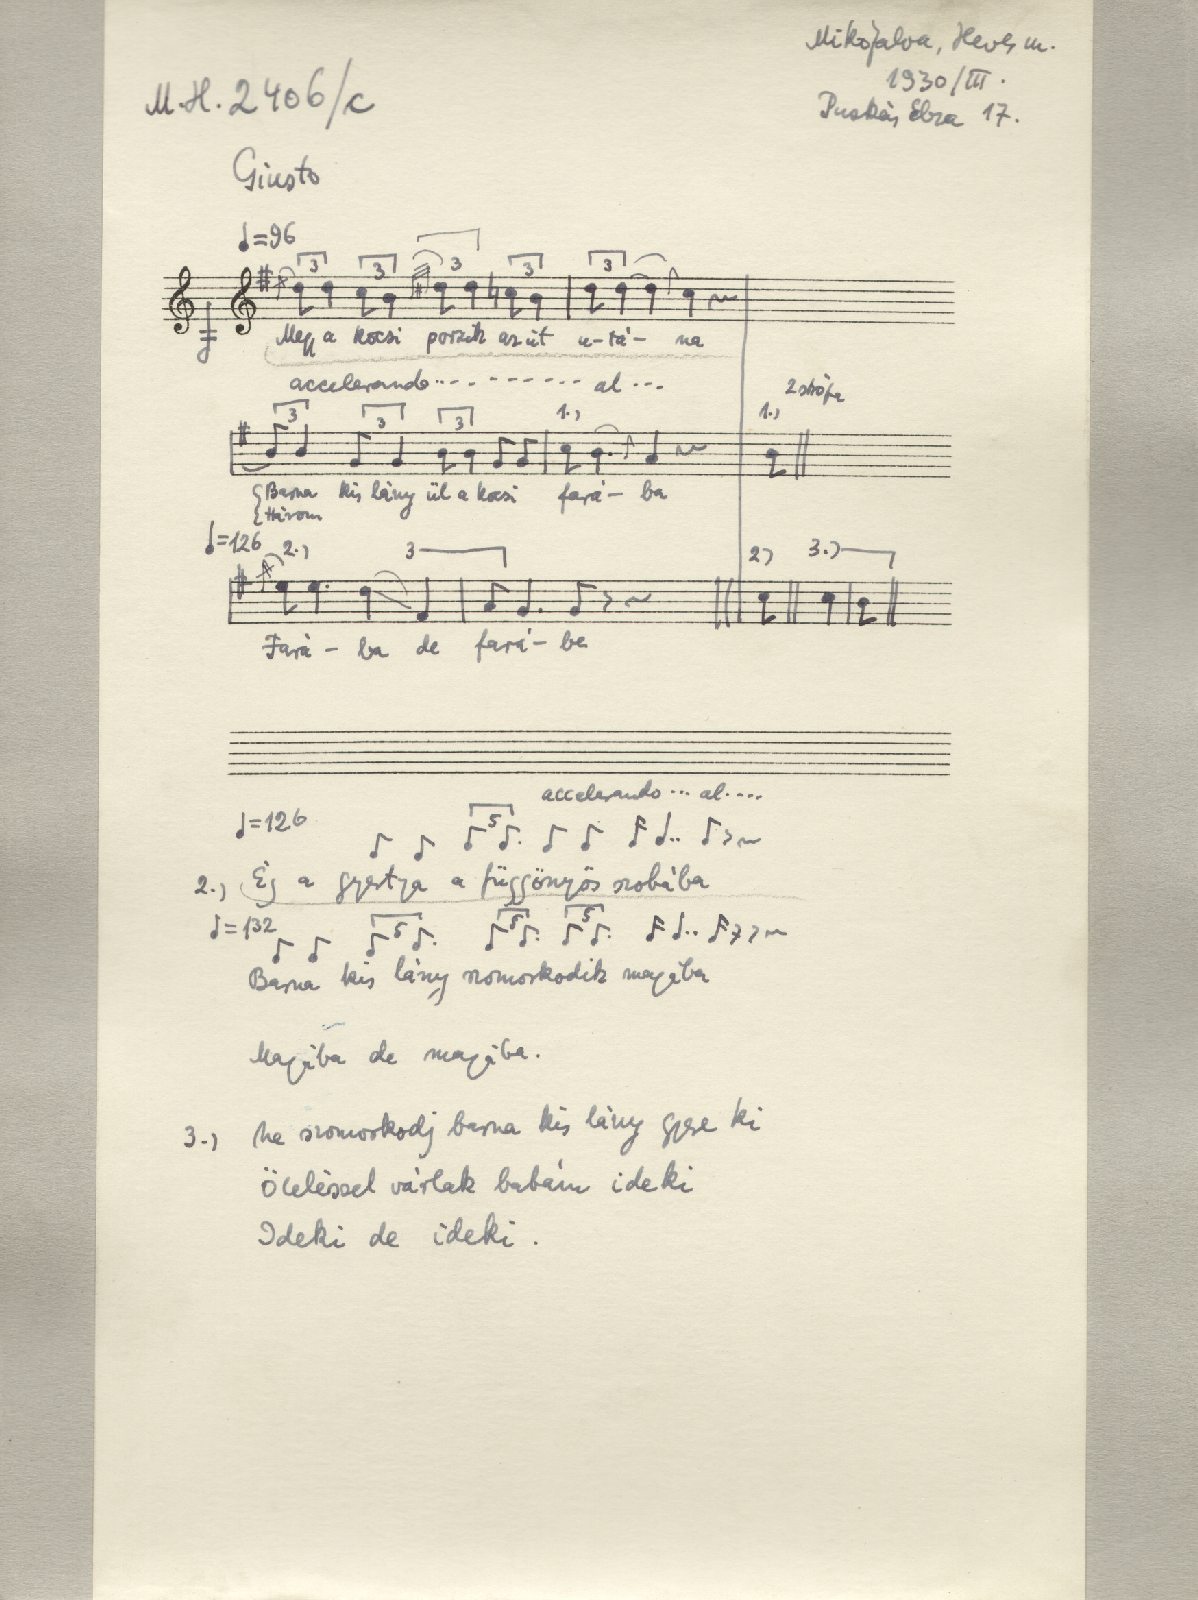 Mikófalva, Heves m.
1930/III.
M.H. 2406/c
Puskás Elza 17.
Giusto
=96
3 3 3 3 3
Megy a kocsi porzik az út u-tá- na
accelerando al
2 strófa
3 3 3 1.) 1.)
Barna kis lány ül a kocsi fará- ba
Három
=126 2.) 3 2) 3.)
Fará- ba de fará- ba
accelerando al
=126 5
2.) Ég a gyertya a függönyös szobába
=132 5 5 5
Barna kis lány szomorkodik magába
Magába de magába.
3.) Ne szomorkodj barna kis lány gyere ki
Öleléssel várlak babám ideki
Ideki de ideki.